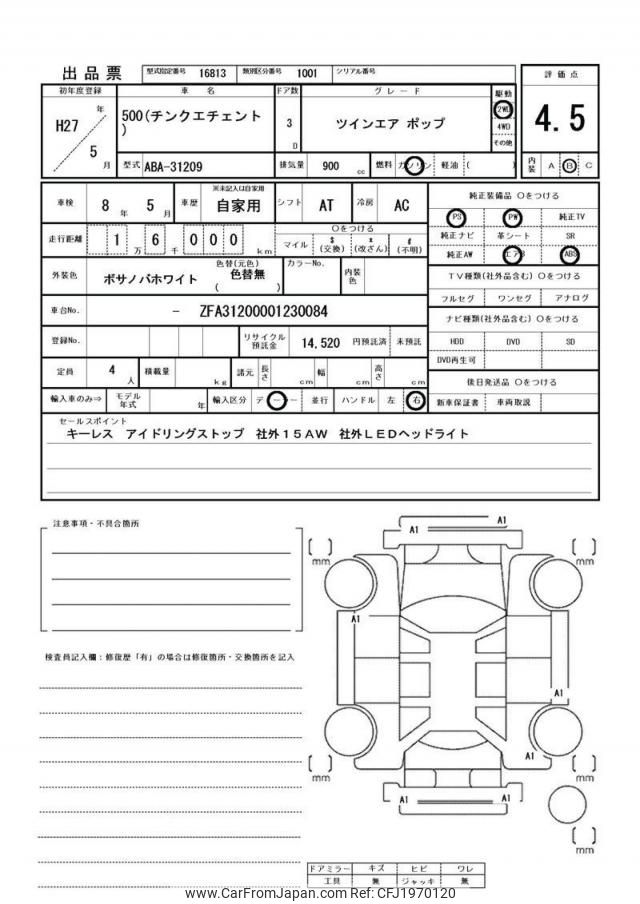 出品票 型式指定番号 16813 類別区分番号 1001 シリアル番号
初年度登録 車名 ドア数 グレード 駆動 評価点
H27年 5月 500(チンクエチェント) 3D ツインエア ポップ 2WD 4WD その他 4.5
型式 ABA-31209 排気量 900 cc 燃料 ガソリン 軽油 ( ) 内装 A B C
車検 8年 5月 車歴 ※未記入は自家用 自家用 シフト AT 冷房 AC
純正装備品 〇をつける
PS PW 純正TV
純正ナビ 革シート SR
純正AW エアB ABS
走行距離 1万6千000km 〇をつける マイル $(交換) x(改ざん) #(不明)
外装色 ボサノバホワイト 色替(元色) 色替無 ( ) カラーNo. 内装色
TV種類(社外品含む) 〇をつける
フルセグ ワンセグ アナログ
車台No. - ZFA31200001230084
ナビ種類(社外品含む) 〇をつける
HDD DVD SD
DVD再生可
登録No. リサイクル預託金 14,520 円預託済 未預託
定員 4人 積載量 kg 諸元 長さ cm 幅 cm 高さ cm
後日発送品 〇をつける
新車保証書 車両取説
輸入車のみ⇒ モデル年式 年 輸入区分 ディーラー 並行 ハンドル 左 右
セールスポイント
キーレス アイドリングストップ 社外15AW 社外LEDヘッドライト
注意事項・不具合箇所
検査員記入欄:修復歴「有」の場合は修復箇所・交換箇所を記入
A1 A1
mm mm
A1
A1
A1
mm mm
A1 A1
mm
ドアミラー キズ ヒビ ワレ
工具 無 ジャッキ 無
www.CarFromJapan.com Ref:CFJ1970120